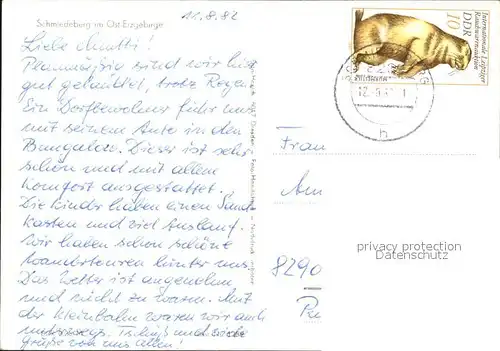 11.8.82
Schmiedeberg im Ost-Erzgebirge
Liebe Mutti!
Planmäßig sind wir hier
gut gelandet, trotz Regen.
Ein Dorfbewohner fuhr uns
mit seinem Auto in den
Bungalow. Dieser ist sehr
schön und mit allem
Komfort ausgestattet.
Die Kinder haben einen Sand-
kasten und viel Auslauf.
Wir haben schon schöne
Wandertouren hinter uns.
Das Wetter ist angenehm
und nicht zu warm. Mit
der Kleinbahn waren wir auch
unterwegs. Tschüß und viele
Grüße von uns allen!
Internationale Leipziger
Rauchwarenauktion
DDR
10
h
Frau
Am
8290
privacy protection
Datenschutz